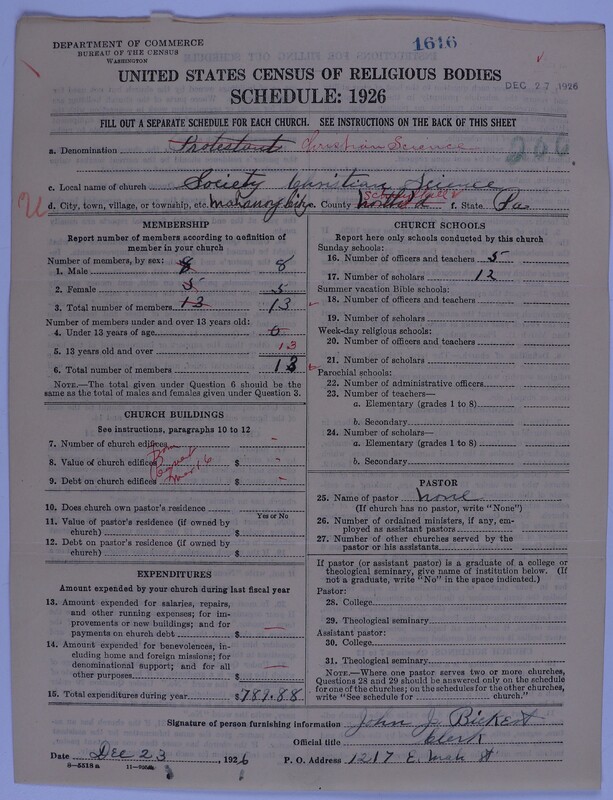 1616
DEPARTMENT OF COMMERCE
BUREAU OF THE CENSUS
WASHINGTON
DEC 27 1926
UNITED STATES CENSUS OF RELIGIOUS BODIES
SCHEDULE: 1926
FILL OUT A SEPARATE SCHEDULE FOR EACH CHURCH. SEE INSTRUCTIONS ON THE BACK OF THIS SHEET
a. Denomination Protestant Christian Science
c. Local name of church Society Christian Science
d. City, town, village, or township, etc. Mahanoy City e. County Schuylkill f. State Pa
MEMBERSHIP
Report number of members according to definition of
member in your church
Number of members, by sex:
1. Male 8 8
2. Female 5 5
3. Total number of members 13 13
Number of members under and over 13 years old:
4. Under 13 years of age 0
5. 13 years old and over 13
6. Total number of members 13
NOTE.—The total given under Question 6 should be
the same as the total of males and females given under Question 3.
CHURCH BUILDINGS
See instructions, paragraphs 10 to 12
7. Number of church edifices -
8. Value of church edifices $ -
9. Debt on church edifices $ -
10. Does church own pastor's residence
Yes or No
11. Value of pastor's residence (if owned by
church) $
12. Debt on pastor's residence (if owned by
church) $
EXPENDITURES
Amount expended by your church during last fiscal year
13. Amount expended for salaries, repairs,
and other running expenses; for im-
provements or new buildings; and for
payments on church debt $ —
14. Amount expended for benevolences, in-
cluding home and foreign missions; for
denominational support; and for all
other purposes $ —
15. Total expenditures during year $ 789.88
CHURCH SCHOOLS
Report here only schools conducted by this church
Sunday schools:
16. Number of officers and teachers 5
17. Number of scholars 12
Summer vacation Bible schools:
18. Number of officers and teachers
19. Number of scholars
Week-day religious schools:
20. Number of officers and teachers
21. Number of scholars
Parochial schools:
22. Number of administrative officers
23. Number of teachers—
a. Elementary (grades 1 to 8)
b. Secondary
24. Number of scholars—
a. Elementary (grades 1 to 8)
b. Secondary
PASTOR
25. Name of pastor None
(If church has no pastor, write "None")
26. Number of ordained ministers, if any, em-
ployed as assistant pastors
27. Number of other churches served by the
pastor or his assistants
If pastor (or assistant pastor) is a graduate of a college or
theological seminary, give name of institution below. (If
not a graduate, write "No" in the space indicated.)
Pastor:
28. College
29. Theological seminary
Assistant pastor:
30. College
31. Theological seminary
NOTE.—Where one pastor serves two or more churches,
Questions 28 and 29 should be answered only on the schedule
for one of the churches; on the schedules for the other churches,
write "See schedule for ............ church."
Signature of person furnishing information John J. Bickert
Official title Clerk
Date Dec 23, 1926 P. O. Address 1217 E. Mah St
8—5518a